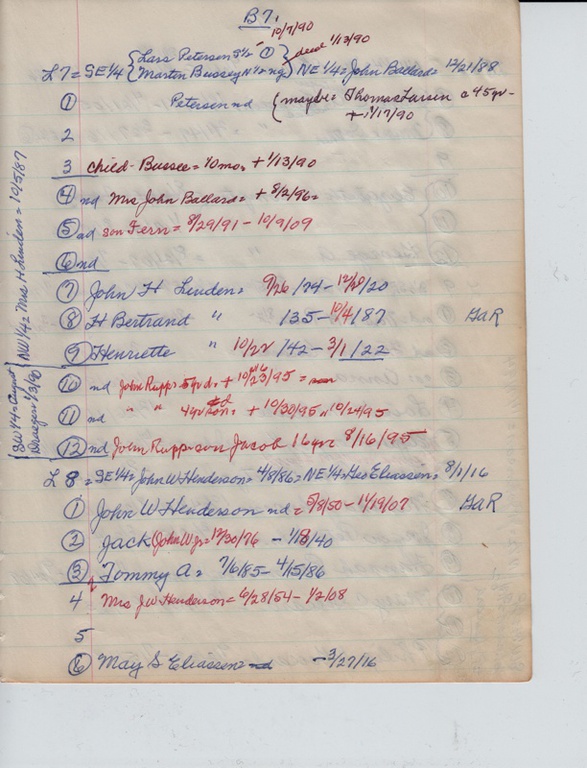 B7.
10/7/90
L7 = SE 1/4 { Lars Petersen S 1/2 = ① } deed 1/13/90
{ Marten Bussey N 1/2 } NE 1/4 = John Ballard = 12/21/88
① Petersen nd { maybe = Thomas Larsen a 45 yr -
+ 1/17/90
2
3 child - Bussee = 10 mo. + 1/13/90
④ nd Mrs John Ballard = + 8/2/96 =
⑤ nd son Fern = 8/29/91 - 10/9/09
⑥ nd
⑦ John H Linden = 9/26/74 - 12/28/20
⑧ H Bertrand " 135 - 10/4/87 GaR
⑨ Henriette " 10/22/42 - 3/1/22
⑩ nd John Rupp = 5 yr d = + 10/23/95 =
⑪ nd " " 4 yr + 10/30/95 , 10/24/95
⑫ nd John Rupp = son Jacob 16 yr 8/16/95
NW 1/4 = Mrs H Linden = 10/5/87
SW 1/4 = August
1/3/90
L 8 = SE 1/4 = John W Henderson = 4/8/86 = NE 1/4 = Geo Eliassen = 8/1/16
① John W Henderson nd = 5/8/50 - 11/19/07 GaR
② Jack (John W Jr = 12/30/76 - 1/18/40
③ Tommy A = 7/6/85 - 4/15/86
4 Mrs J W Henderson = 6/28/54 - 1/2/08
5
⑥ May S Eliassen = nd - 3/27/16